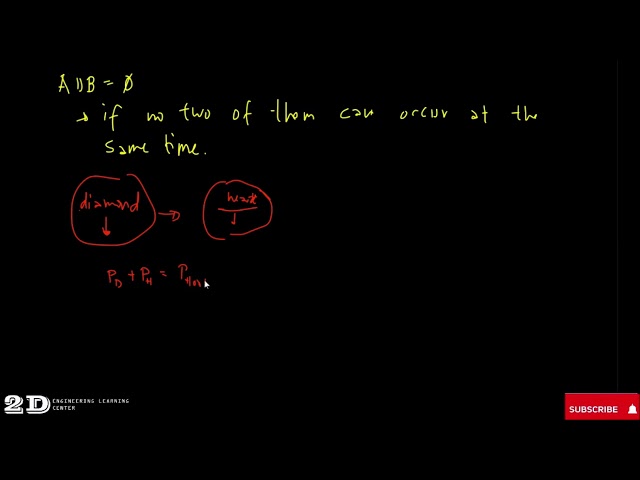 A ∩ B = ∅
→ if no two of them can occur at the
same time.
diamond → heart
P_D + P_H = P_H or
2D ENGINEERING LEARNING
CENTER
SUBSCRIBE